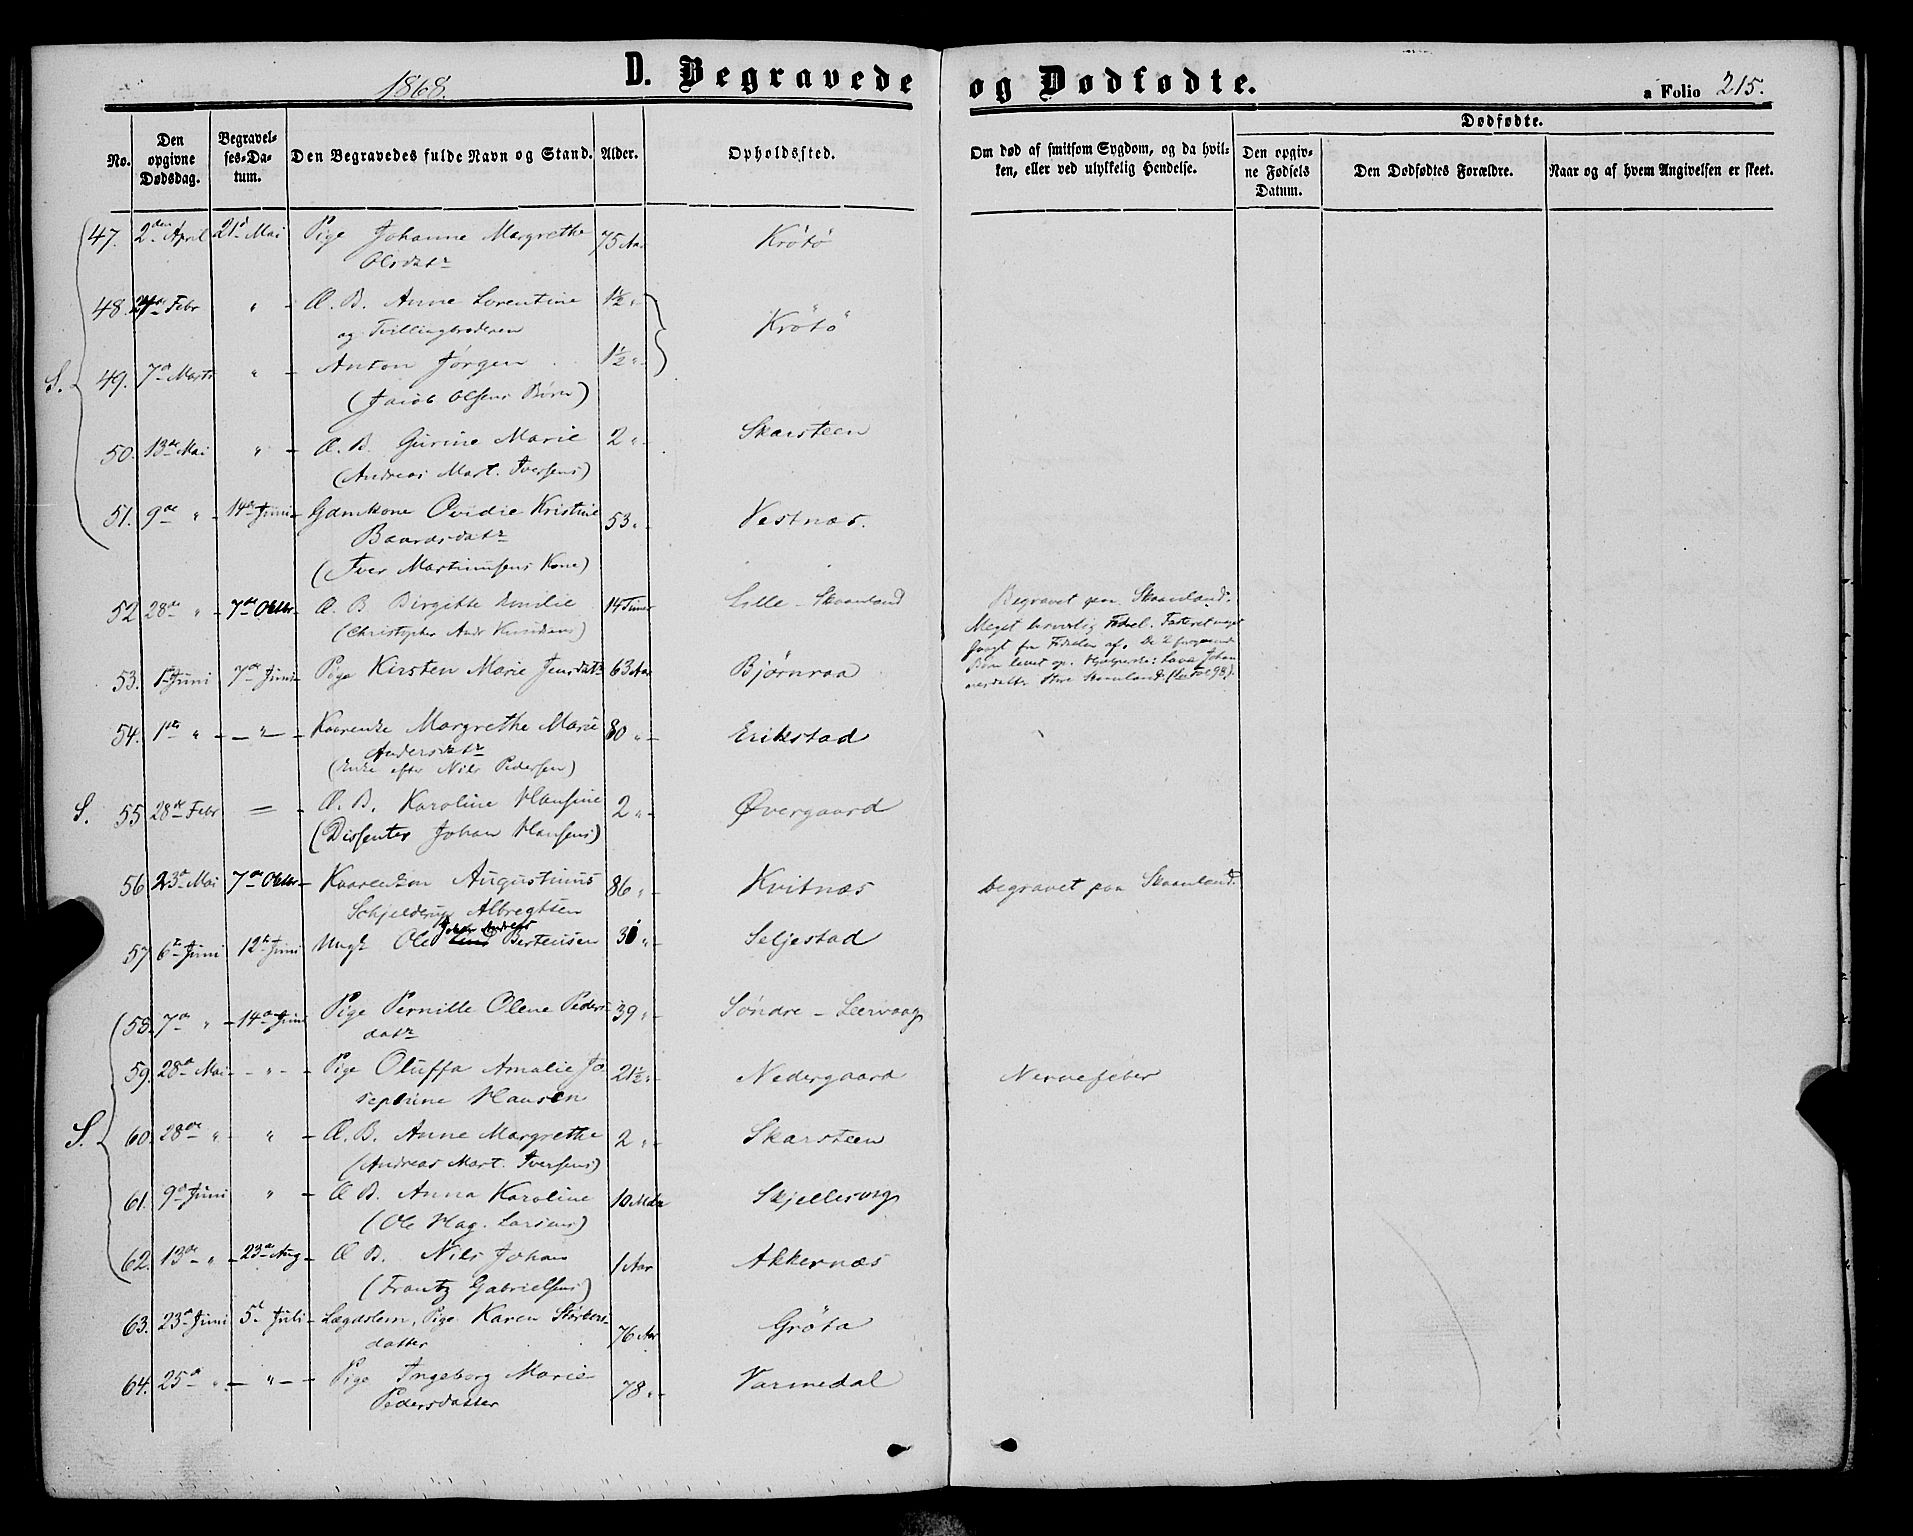 1868.
D. Begravede og Dødfødte.
a Folio 215.
No.
Den opgivne Dødsdag.
Begravelses-Datum.
Den Begravedes fulde Navn og Stand.
Alder.
Opholdssted.
Om død af smitsom Sygdom, og da hvilken, eller ved ulykkelig Hendelse.
Dødfødte.
Den opgivne Fødsels Datum.
Den Dødfødtes Forældre.
Naar og af hvem Angivelsen er skeet.
47. 2den April 21d Mai Pige Johanne Margrethe 75 Aar Krötö
Olsdatr
48. Febr " - Æ. B. Anne Lorentine 1½ " Krötö
og Tvillingbroderen
S. 49. 7de Marts " - Anton Jørgen 1½ "
(Jacob Olsens Børn)
50. 13de Mai " - Æ. B. Gurine Marie 2 " Skarsteen
(Andreas Mart. Iversens)
51. 9de " - 14de Juni - Gamkone Ovidie Kristine 53 " Vestnæs.
Baardsdatr
(Iver Martinusens Kone)
52 28de " - 7de Oktbr - Æ. B. Birgitte Emilie 14 Timer Lille-Skaanland Begravet paa Skaanland.
(Christopher Andr
Meget
53. 1ste Juni 7de Juni Pige Kirsten Marie Jensdatr 63 Aar Bjørnraa
54. 1ste " - " - Kaarenke Margrethe Marie 80 " - Erikstad
Andersdatr
(Enke efter Nils Pedersen)
S. 55 28de Febr = - Æ. B. Karoline Hansine 2 " - Øvergaard
(Dissenter Johan Hansens)
56 23de Mai 7de Oktbr - Augustinus 86 " - Kvitnæs begravet paa Skaanland.
Schjelderup Albregtsen
57 6te Juni 12te Juni Ungk Ole Johan Andreas Bertensen 30 " - Seljestad
58. 7de " - 14de Juni Pige Pernille Olene Peders- 39 " - Söndre-Leervaag
datr
59. 28de Mai - " - Pige Oluffa Amalie Jo 21½ " - Nedergaard Nervefeber
sephine Hansen
S. 60. 28de " - " - Æ. B. Anne Margrethe 2 " - Skarsteen
(Andreas Mart. Iversens)
61. 9de Juni " - Æ B. Anna Karoline 10 Mdr Skjellesvig
(Ole Hag. Larsens)
62. 13de " - 23de Aug - Æ B. Nils Johan 1 Aar Akkernæs
(Frantz Gabrielsens)
63. 23de Juni 5te Juli - Lægdslem, Pige Karen Störkers- 76 Aar Gröta
datter
64. 25de " - " - Pige Ingeborg Marie 78 " - Varmedal
Pedersdatter